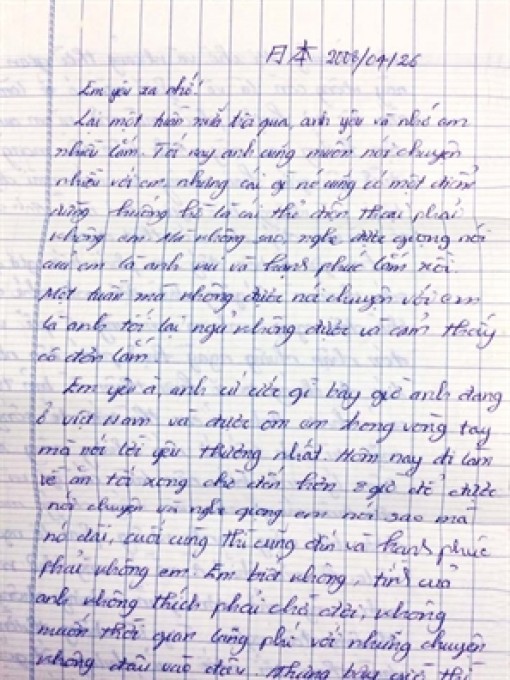 日本 2008/04/26
Em yêu xa nhớ!
Lại một tuần nữa trôi qua, anh yêu và nhớ em
nhiều lắm. Tối nay anh cũng muốn nói chuyện
nhiều với em, nhưng cái gì nó cũng có một điểm
dừng thường là cái thẻ điện thoại phải
không em. Mà không sao, nghe được giọng nói
của em là anh vui và hạnh phúc lắm rồi.
Một tuần mà không được nói chuyện với em
là anh tối lại ngủ không được và cảm thấy
cô đơn lắm.
Em yêu à, anh cứ ước gì bây giờ anh đang
ở Việt Nam và được ôm em trong vòng tay
mà nói lời yêu thương nhất. Hôm nay đi làm
về ăn tối xong chờ đến hơn 8 giờ để được
nói chuyện và nghe giọng em nói sao mà
nó dài, cuối cùng thì cũng đến và hạnh phúc
phải không em. Em biết không, tính của
anh không thích phải chờ đợi, không
muốn thời gian lãng phí với những chuyện
không đâu vào đâu. Nhưng bây giờ thì